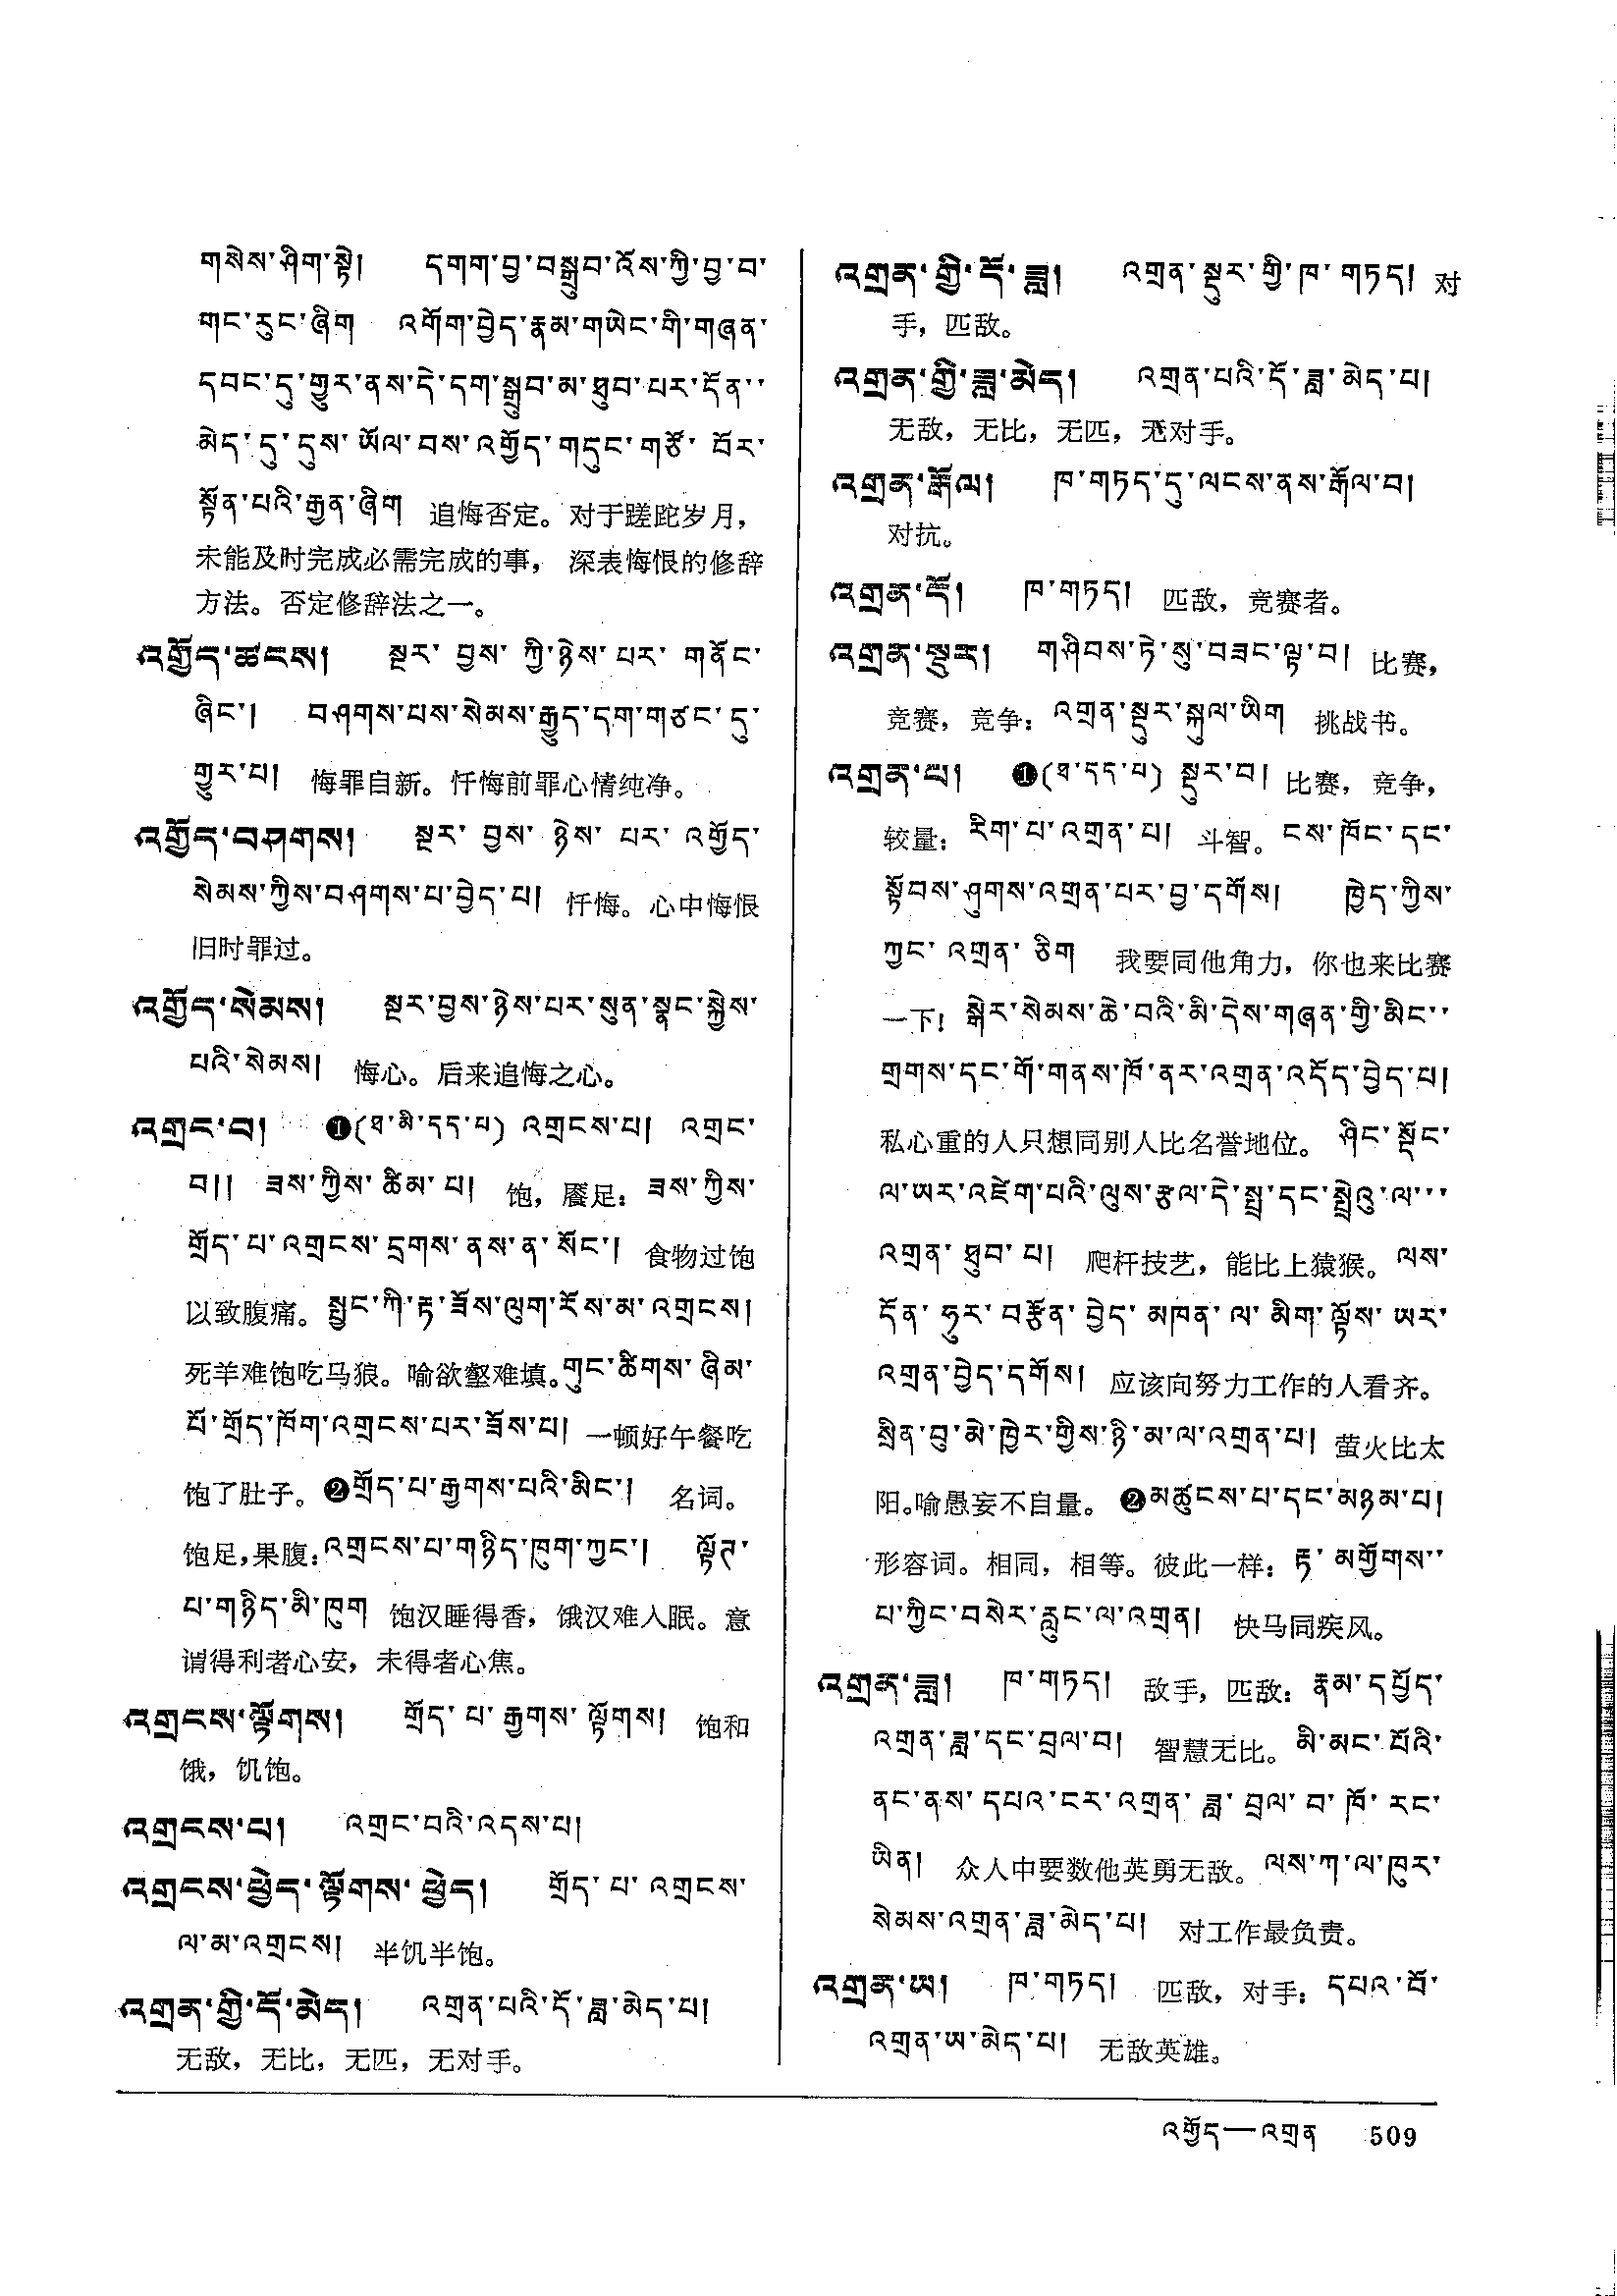 གསེས་ཤིག་སྟེ། དགག་བྱ་བསྒྲུབ་འོས་ཀྱི་བྱ་བ་
གང་རུང་ཞིག འགོག་བྱེད་རྣམ་གཡེང་གི་གཞན་
དབང་དུ་གྱུར་ནས་དེ་དག་སྒྲུབ་མ་ཐུབ་པར་དོན་་
མེད་དུ་དུས་ཡོལ་བས་འགྱོད་གདུང་གཙོ་བོར་
སྟོན་པའི་རྒྱན་ཞིག 追悔否定。对于蹉跎岁月，
未能及时完成必需完成的事， 深表悔恨的修辞
方法。否定修辞法之一。
འགྱོད་ཚངས། སྔར་བྱས་ཀྱི་ཉེས་པར་གནོང་
ཞིང་། བཤགས་པས་སེམས་རྒྱུད་དག་གཙང་དུ་
གྱུར་པ། 悔罪自新。忏悔前罪心情纯净。
འགྱོད་བཤགས། སྔར་བྱས་ཉེས་པར་འགྱོད་
སེམས་ཀྱིས་བཤགས་པ་བྱེད་པ། 忏悔。心中悔恨
旧时罪过。
འགྱོད་སེམས། སྔར་བྱས་ཉེས་པར་སུན་སྣང་སྐྱེས་
པའི་སེམས། 悔心。后来追悔之心。
འགྲང་བ། ❶(ཐ་མི་དད་པ) འགྲངས་པ། འགྲང་
བ།། ཟས་ཀྱིས་ཚིམ་པ། 饱，餍足：ཟས་ཀྱིས་
གྲོད་པ་འགྲངས་དྲགས་ནས་ན་སོང་། 食物过饱
以致腹痛。སྤྱང་ཀི་རྟ་ཟོས་ལུག་རོས་མ་འགྲངས།
死羊难饱吃马狼。喻欲壑难填。གུང་ཚིགས་ཞིམ་
པོ་གྲོད་ཁོག་འགྲངས་པར་ཟོས་པ། 一顿好午餐吃
饱了肚子。❷གྲོད་པ་རྒྱགས་པའི་མིང་། 名词。
饱足，果腹：འགྲངས་པ་གཉིད་ཁུག་ཀྱང་། ལྟོཊ་
པ་གཉིད་མི་ཁུག 饱汉睡得香，饿汉难入眠。意
谓得利者心安，未得者心焦。
འགྲངས་ལྟོགས། གྲོད་པ་རྒྱགས་ལྟོགས། 饱和
饿，饥饱。
འགྲངས་པ། འགྲང་བའི་འདས་པ།
འགྲངས་ཕྱེད་ལྟོགས་ཕྱེད། གྲོད་པ་འགྲངས་
ལ་མ་འགྲངས། 半饥半饱。
འགྲན་གྱི་དོ་མེད། འགྲན་པའི་དོ་ཟླ་མེད་པ།
无敌，无比，无匹，无对手。
འགྲན་གྱི་དོ་ཟླ། འགྲན་སྡུར་གྱི་ཁ་གཏད། 对
手，匹敌。
འགྲན་གྱི་ཟླ་མེད། འགྲན་པའི་དོ་ཟླ་མེད་པ།
无敌，无比，无匹，无对手。
འགྲན་རྒོལ། ཁ་གཏད་དུ་ལངས་ནས་རྒོལ་བ།
对抗。
འགྲན་དོ། ཁ་གཏད། 匹敌，竞赛者。
འགྲན་སྡུར། གཤིབས་ཏེ་སུ་བཟང་ལྟ་བ། 比赛，
竞赛，竞争：འགྲན་སྡུར་སྐུལ་ཡིག 挑战书。
འགྲན་པ། ❶(ཐ་དད་པ) སྡུར་བ། 比赛，竞争，
较量：རིག་པ་འགྲན་པ། 斗智。ངས་ཁོང་དང་
སྟོབས་ཤུགས་འགྲན་པར་བྱ་དགོས། ཁྱེད་ཀྱིས་
ཀྱང་འགྲན་ཅིག 我要同他角力，你也来比赛
一下！སྒེར་སེམས་ཆེ་བའི་མི་དེས་གཞན་གྱི་མིང་་
གྲགས་དང་གོ་གནས་ཁོ་ནར་འགྲན་འདོད་བྱེད་པ།
私心重的人只想同别人比名誉地位。ཤིང་སྡོང་
ལ་ཡར་འཛེག་པའི་ལུས་རྩལ་དེ་སྤྲ་དང་སྤྲེའུ་ལ་་་
འགྲན་ཐུབ་པ། 爬杆技艺，能比上猿猴。ལས་
དོན་ཧུར་བརྩོན་བྱེད་མཁན་ལ་མིག་ལྟོས་ཡར་
འགྲན་བྱེད་དགོས། 应该向努力工作的人看齐。
སྲིན་བུ་མེ་ཁྱེར་གྱིས་ཉི་མ་ལ་འགྲན་པ། 萤火比太
阳。喻愚妄不自量。❷མཚུངས་པ་དང་མཉམ་པ།
形容词。相同，相等。彼此一样：རྟ་མགྱོགས་་
པ་ཀྱིང་བསེར་རླུང་ལ་འགྲན། 快马同疾风。
འགྲན་ཟླ། ཁ་གཏད། 敌手，匹敌：རྣམ་དཔྱོད་
འགྲན་ཟླ་དང་བྲལ་བ། 智慧无比。མི་མང་པོའི་
ནང་ནས་དཔའ་ངར་འགྲན་ཟླ་བྲལ་བ་ཁོ་རང་
ཡིན། 众人中要数他英勇无敌。ལས་ཀ་ལ་ཁུར་
སེམས་འགྲན་ཟླ་མེད་པ། 对工作最负责。
འགྲན་ཡ། ཁ་གཏད། 匹敌，对手：དཔའ་བོ་
འགྲན་ཡ་མེད་པ། 无敌英雄。
འགྱོད—འགྲན 509